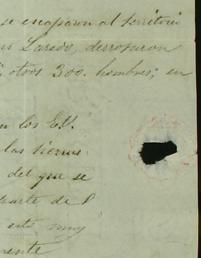 se escaparon al territorio
Laredo, derrotaron
otros 300. hombres; en
en los EU.
las tierras
del que se
parte de P
esto muy